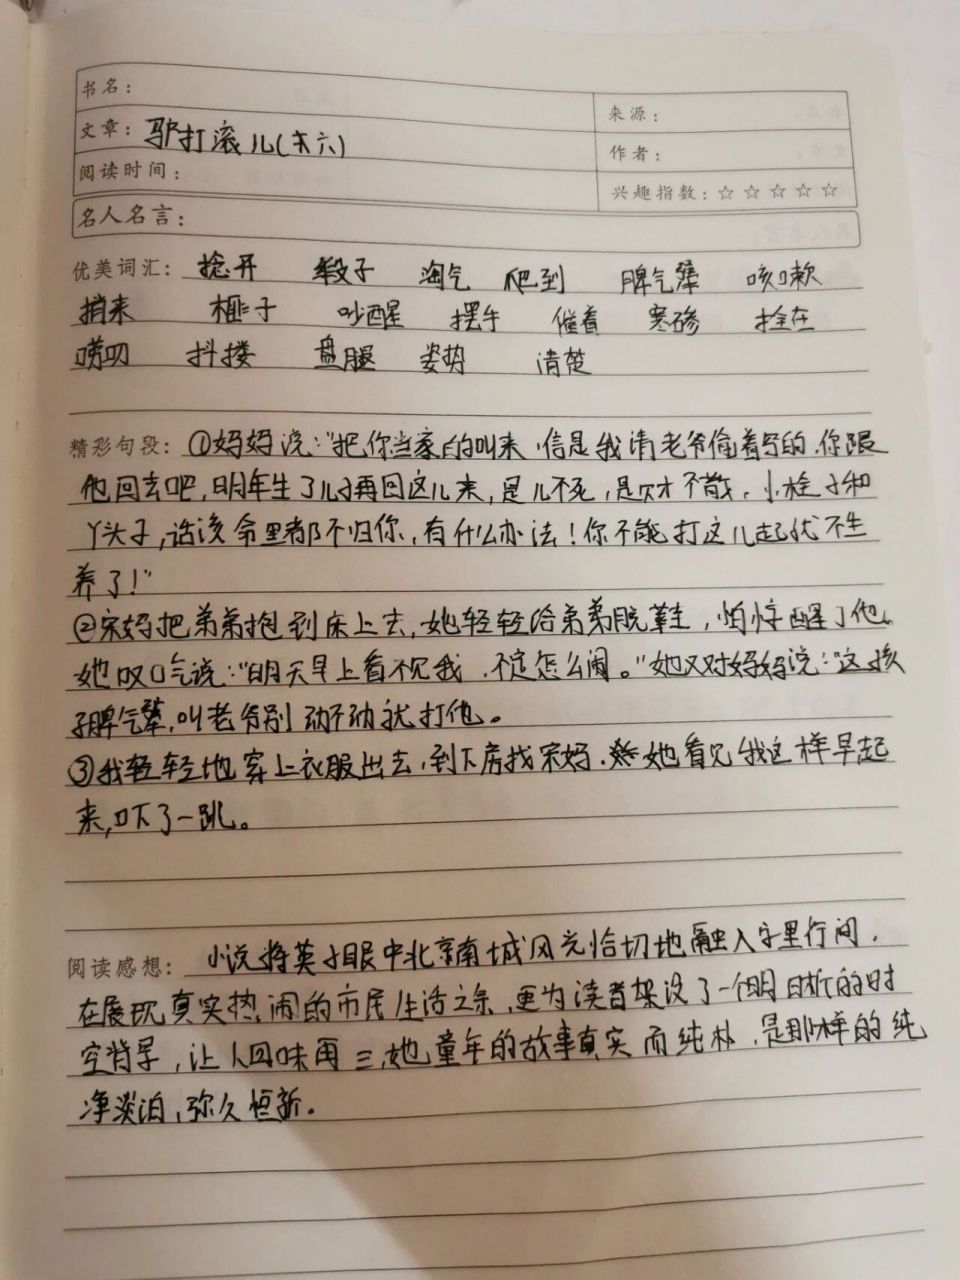 书名：
来源：
文章：驴打滚儿(末六)
作者：
阅读时间：
兴趣指数：☆☆☆☆☆
名人名言：
优美词汇：捻开 缎子 淘气 爬到 脾气犟 咳嗽
捎来 榧子 吵醒 摆手 催着 寒碜 拴在
唠叨 抖搂 盘腿 姿势 清楚
精彩句段：①妈妈说："把你当家的叫来,信是我请老爷偷着写的.你跟
他回去吧,明年生了儿子再回这儿来,是儿不死,是财不散,小栓子和
丫头子,活该命里都不归你,有什么办法!你不能打这儿起就不生
养了!"
②宋妈把弟弟抱到床上去,她轻轻给弟弟脱鞋,怕惊醒了他。
她叹口气说:"明天早上看不见我,不定怎么闹。"她又对妈妈说:"这孩
子脾气犟,叫老爷别动不动就打他。
③我轻轻地穿上衣服出去,到下房找宋妈.她看见我这样早起
来,吓了一跳。
阅读感想：小说将英子眼中北京南城风光恰切地融入字里行间,
在展现真实热闹的市民生活之余,更为读者架设了一个明晰的时
空背景,让人回味再三,她童年的故事真实而纯朴,是那样的纯
净淡泊,弥久恒新.